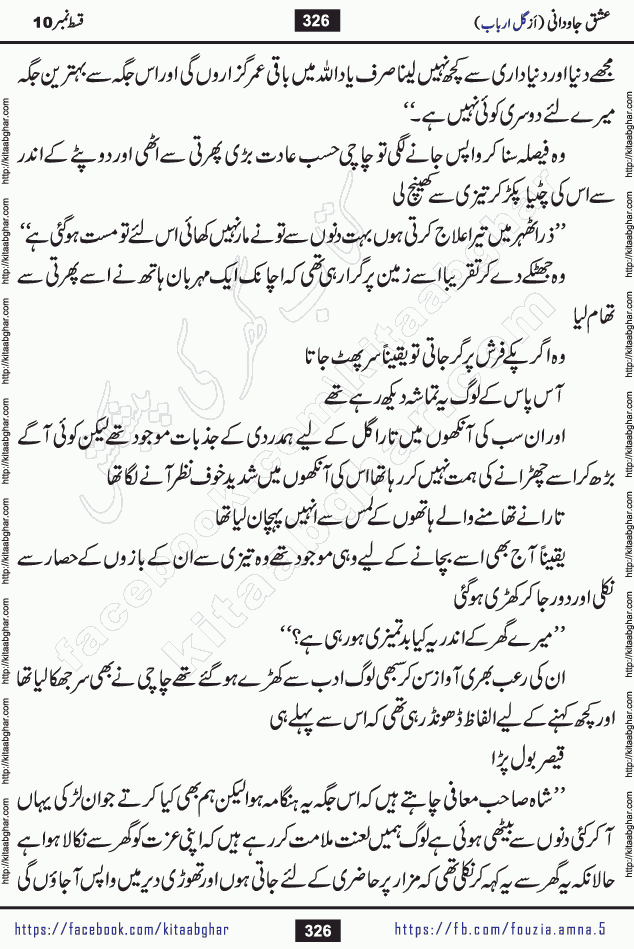 عشق جاودانی (از گل ارباب)
326
قسط نمبر 10
مجھے دنیا اور دنیا داری سے کچھ نہیں لینا صرف یاد اللہ میں باقی عمر گزاروں گی اور اس جگہ سے بہترین جگہ
میرے لئے دوسری کوئی نہیں ہے۔‘‘
وہ فیصلہ سنا کر واپس جانے لگی تو چاچی حسب عادت بڑی پھرتی سے اٹھی اور دوپٹے کے اندر
سے اس کی چٹیا پکڑ کر تیزی سے کھینچ لی
’’ذرا ٹھہر میں تیرا علاج کرتی ہوں بہت دنوں سے تو نے مار نہیں کھائی اس لئے تو مست ہو گئی ہے‘‘
وہ جھٹکے دے کر تقریبا اسے زمین پر گرا رہی تھی کہ اچانک ایک مہربان ہاتھ نے اسے پھرتی سے
تھام لیا
وہ اگر پکے فرش پر گر جاتی تو یقیناً سر پھٹ جاتا
آس پاس کے لوگ یہ تماشہ دیکھ رہے تھے
اور ان سب کی آنکھوں میں تارا گل کے لیے ہمدردی کے جذبات موجود تھے لیکن کوئی آگے
بڑھ کر اسے چھڑانے کی ہمت نہیں کر رہا تھا اس کی آنکھوں میں شدید خوف نظر آنے لگا تھا
تارا نے تھامنے والے ہاتھوں کے لمس سے انہیں پہچان لیا تھا
یقیناً آج بھی اسے بچانے کے لیے وہی موجود تھے وہ تیزی سے ان کے بازوں کے حصار سے
نکلی اور دور جا کر کھڑی ہو گئی
’’میرے گھر کے اندر یہ کیا بدتمیزی ہو رہی ہے؟‘‘
ان کی رعب بھری آواز سن کر سبھی لوگ ادب سے کھڑے ہو گئے تھے چاچی نے بھی سر جھکا لیا تھا
اور کچھ کہنے کے لیے الفاظ ڈھونڈ رہی تھی کہ اس سے پہلے ہی
قیصر بول پڑا
’’شاہ صاحب معافی چاہتے ہیں کہ اس جگہ یہ ہنگامہ ہوا لیکن ہم بھی کیا کرتے جوان لڑکی یہاں
آ کر کئی دنوں سے بیٹھی ہوئی ہے لوگ ہمیں لعنت ملامت کر رہے ہیں کہ اپنی عزت کو گھر سے نکالا ہوا ہے
حالانکہ یہ گھر سے یہ کہہ کر نکلی تھی کہ مزار پر حاضری کے لئے جاتی ہوں اور تھوڑی دیر میں واپس آ جاؤں گی
http://kitaabghar.com http://kitaabghar.com http://kitaabghar.com http://kitaabghar.com http://kitaabghar.com http://kitaabghar.com http://kitaabghar.com http://kitaabghar.com
http://kitaabghar.com http://kitaabghar.com http://kitaabghar.com http://kitaabghar.com http://kitaabghar.com http://kitaabghar.com http://kitaabghar.com http://kitaabghar.com
کتاب گھر کی پیشکش
kitaabghar.com
facebook.com/kitaabghar
https://facebook.com/kitaabghar
326
https://fb.com/fouzia.amna.5